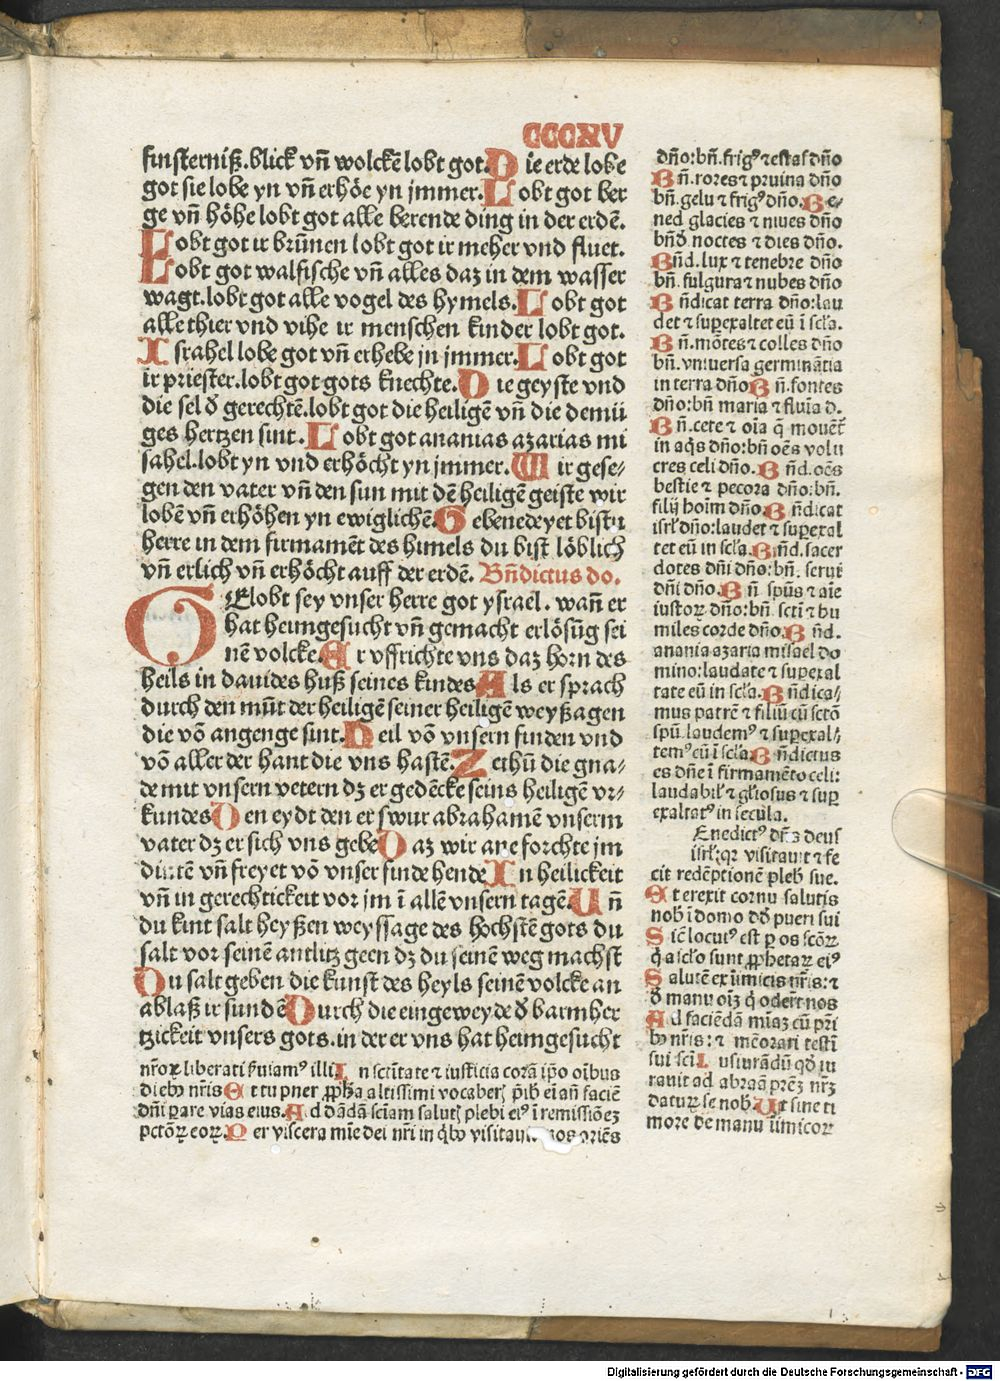 CCCXV
finsterniß.blick vñ wolckẽ lobt got.Die erde lobe
got sie lobe yn vñ erhöe yn jmmer.Lobt got ber
ge vñ höhe lobt got alle berende ding in der erdẽ.
Lobt got ir brũnen lobt got ir meher vnd fluet.
Lobt got walfische vñ alles daz in dem wasser
wagt.lobt got alle vogel des hymels.Lobt got
alle thier vnd vihe ir menschen kinder lobt got.
Israhel lobe got vñ erhebe jn jmmer.Lobt got
ir priester.lobt got gots knechte.Die geyste vnd
die sel d̕ gerechtẽ.lobt got die heiligẽ vñ die demü
ges hertzen sint.Lobt got ananias azarias mi
sahel.lobt yn vnd erhöcht yn jmmer.Wir gese-
gen den vater vñ den sun mit dẽ heiligẽ geiste wir
lobẽ vñ erhöhen yn ewiglichẽ.Gebenedeyet bistu
herre in dem firmamẽt des himels du bist löblich
vñ erlich vñ erhöcht auff der erdẽ. Bñdictus do.
GElobt sey vnser herre got ysrael. wañ er
hat heimgesucht vñ gemacht erlösũg sei
nẽ volcke.Er vffrichte vns daz horn des
heils in dauides huß seines kindes Als er sprach
durch den mũt der heiligẽ seiner heiligẽ weyßagen
die võ angenge sint.Heil võ vnsern finden vnd
võ aller der hant die vns hastẽ.Zethũ die gna-
de mit vnsern vetern dz er gedẽcke seins heiligẽ vr-
kundes Den eydt den er swur abrahamẽ vnserm
vater dz er sich vns gebe Daz wir ane forchte jm
dintẽ vñ freyet võ vnser finde hende In heilickeit
vñ in gerechtickeit vor jm ĩ allẽ vnsern tagẽ.Uñ
du kint salt heyßen weyssage des höchstẽ gots du
salt vor seinẽ antlitz geen dz du seinẽ weg machst
Du salt geben die kunst des heyls seinẽ volcke an
ablaß ir sundẽ Durch die eingeweyde d̕ barmher
tzickeit vnsers gots.in der er vns hat heimgesucht
nr̃oꝝ liberati s̃uiamꝰ illi.In scĩtate ⁊ iusticia corã ip̃o oĩbus
diebꝫ nr̃is Et tu puer ꝓph̃a altissimi vocaberꝭ p̃ibꝭ ei añ faciẽ
dñi ꝑare vias eius.Ad dãdã sciam̃ salutꝭ plebi eiꝰ ĩ remissiõeꝫ
pctõꝝ eoꝝ.Per viscera mĩe dei nr̃i in q̃bꝰ visitauit nos oriẽs
dño:bñ.frigꝰ ⁊ estas dño
Bñ.rores ⁊ pruina dño
bñ.gelu ⁊ frigꝰ dño.Be-
ned glacies ⁊ niues dño
bñd̕ noctes ⁊ dies dño.
Bñd.lux ⁊ tenebre dño
bñ.fulgura ⁊ nubes dño
Bñdicat terra dño:lau
det ⁊ suꝑexaltet eũ ĩ scl̃a.
Bñ.mõtes ⁊ colles dño
bñ.vniuersa germinãtia
in terra dño Bñ.fontes
dño:bñ maria ⁊ fluĩa d.
Bñ.cete ⁊ oĩa q̃ mouẽt̃
in aq̃s dño:bñ oẽs volu
cres celi dño.Bñd.oẽs
bestie ⁊ pecora dño:bñ.
filij hoim̃ dño.Bñdicat
isrl̃ dño:laudet ⁊ suꝑexal
tet eũ in scl̃a.Bñd.sacer
dotes dñi dño:bñ.serui
dñi dño.Bñ spũs ⁊ aĩe
iustoꝝ dño:bñ.scti̇ ⁊ hu
miles corde dño.Bñd.
anania azaria misael do
mino:laudate ⁊ suꝑexal
tate eũ in scl̃a.Bñdica-
mus patrẽ ⁊ filiũ cũ sctõ
spũ.laudemꝰ ⁊ suꝑexal-
temꝰ eũ ĩ scl̃a.Bñdictus
es dñe ĩ firmamẽto celi:
laudabil̕ ⁊ gl̃iosus ⁊ suꝑ
exaltatꝰ in secula.
Enedictꝰ dñs deus
isrl̃:qꝛ visitauit ⁊ fe
cit redẽptionẽ pleb̕ sue.
Et erexit cornu salutis
nob̕ ĩ domo dd̕ pueri sui
Siĉ locutꝰ est ꝑ os scõꝝ
q̃ a scl̃o sunt ꝓphetaꝝ eiꝰ
Salutẽ ex inimicis nr̃is:⁊
d̕ manu oĩm q̃ oder̃t nos
Ad faciẽdã mĩaꝫ cũ pr̃i
bꝰ nr̃is:⁊ mẽorari testĩ
sui scĩ.Iusiurãdũ qd̕ iu
rauit ad abraã prẽꝫ nr̃ꝫ
daturꝝ se nob̕.Ut sine ti
more de manu inimicoꝝ
Digitalisierung gefördert durch die Deutsche Forschungsgemeinschaft - DFG